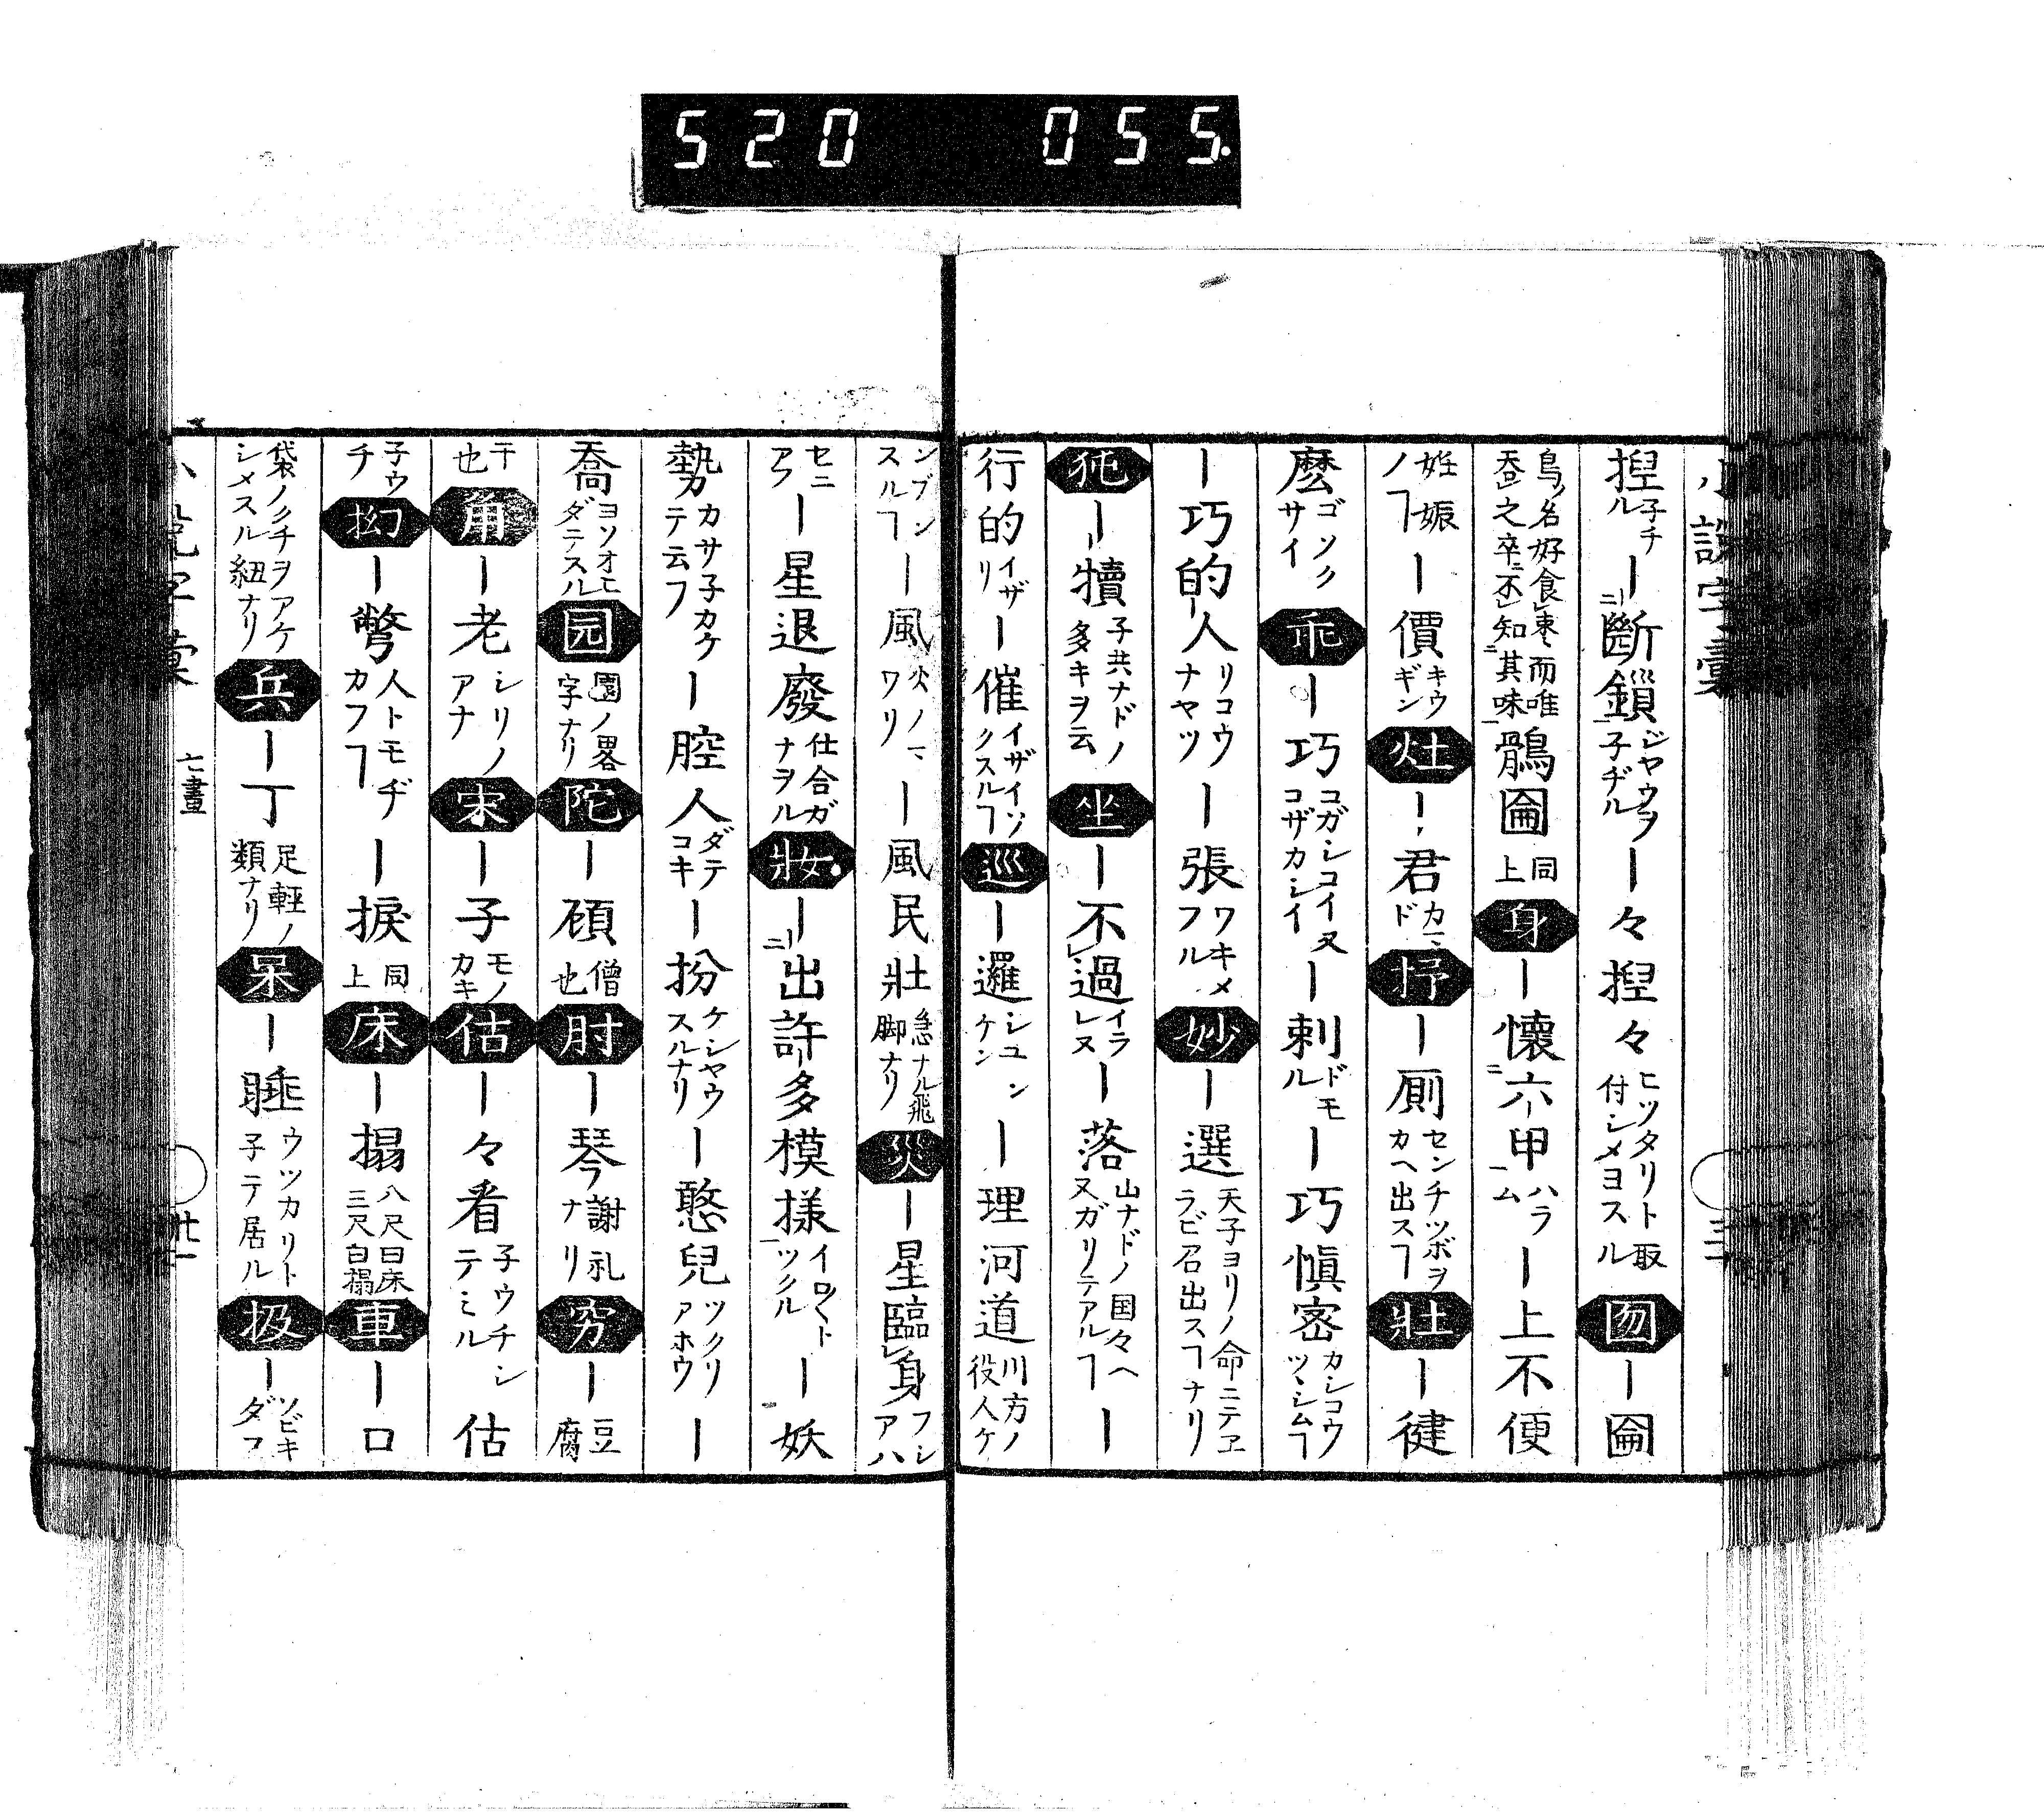 520 055.
捏子チル ー断鎖ジヤウヲ子ヂル ー々捏々ヒツタリト取付シメヨスル 囫ー圇
鳥ノ名好食棗而唯呑之卒不知其味 鶻圇同上 身ー懐六甲ハラム ー上不便
妊娠ノヿ ー價キウギン 灶ー君カマド 抒ー厠センチツボヲカヘ出スヿ 壯ー健
麽ゴツクサイ 乖ー巧コガシコイヌコザカシイ ー剌ドモル ー巧愼宻カシコウツヽシムヿ
ー巧的人リコウナヤツ ー張ワキメフル 妙ー選天子ヨリノ命ニテヱラビ召出スヿナリ
㹠ー犢子共ナドノ多キヲ云 坐ー不過イラレヌ ー落山ナドノ国々ヘ又ガリテアルヿ ー
行的イザリ ー催イザイソクスルヿ 巡ー邏シユンケン ー理河道川方ノ役人ケ
ンブンスルヿ ー風火ノマワリ ー風民壯急ナル飛脚ナリ 災ー星臨身フシアハ
セニアフ ー星退廢仕合ガナヲル 妝ー出許多模様イロ〱トツクル ー妖
勢カサ子カケテ云フ ー腔人ダテコキ ー扮ケシヤウスルナリ ー憨兒ツクリアホウ ー
喬ヨソオヒダテスル 园園ノ畧字ナリ 陀ー頎僧也 肘ー琴謝礼ナリ 穷ー豆腐
干也 角ー老シリノアナ 宋ー子モノカキ 估ー々看子ウチシテミル 估
子ウチ 拗ー彆人トモヂカフヿ ー捩同上 床ー搨八尺曰床三尺白榻 車ー口
袋ノクチヲアケシメスル紐ナリ 兵ー丁足軽ノ類ナリ 呆ー睡ウツカリト子テ居ル 扱ーソビキダフ
七畫